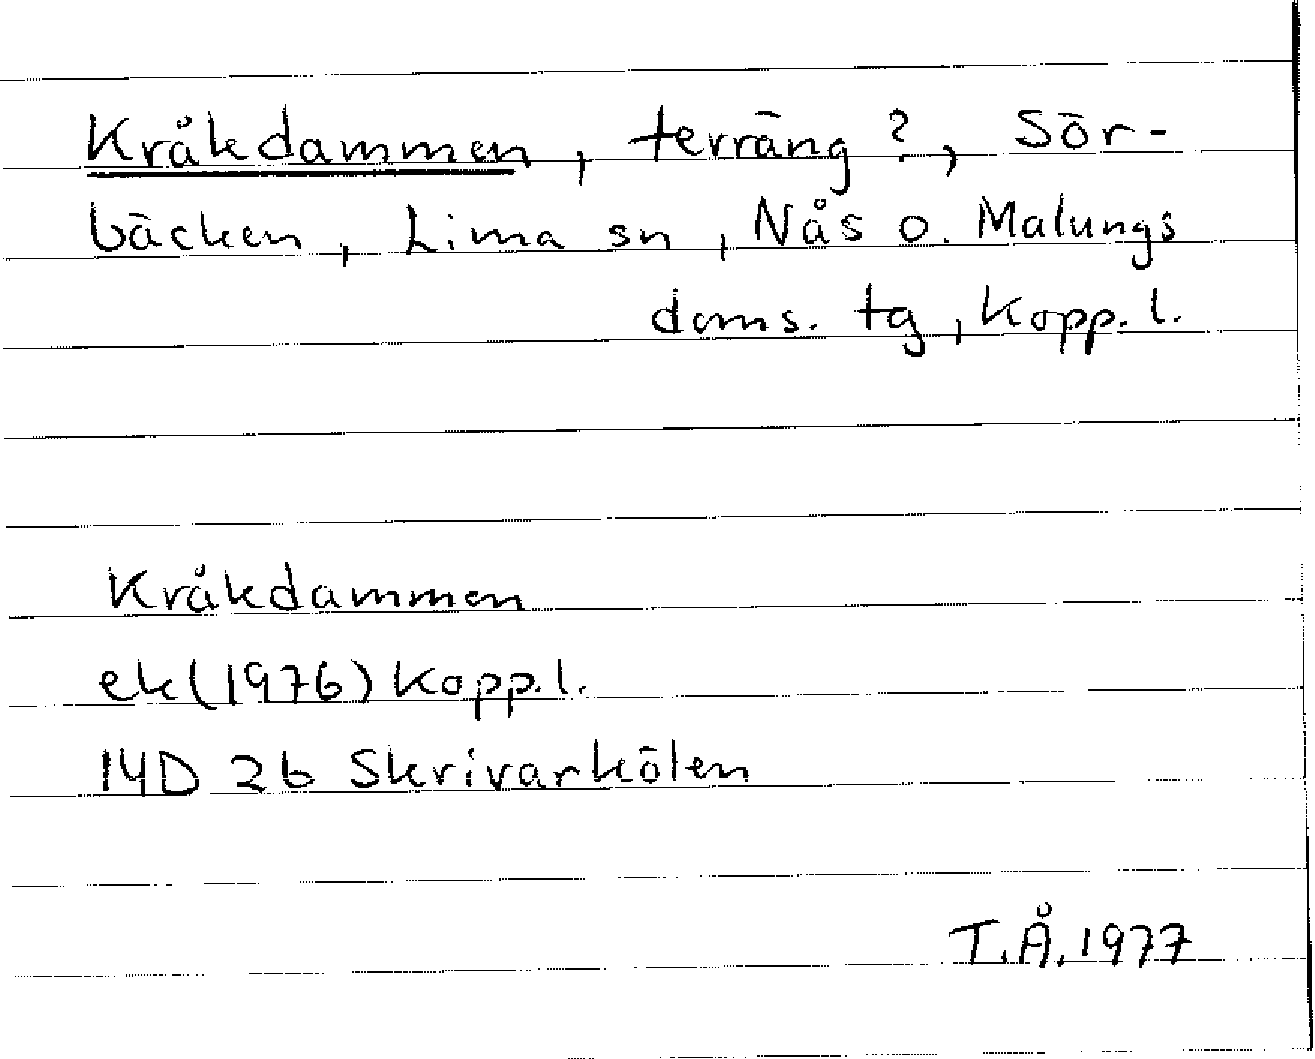 Kråkdammen, terräng?, Sör-
bäcken, Lima sn, Nås o. Malungs
doms. tg, Kopp. l.
Kråkdammen
ek (1976) Kopp. l.
14D 2b Skrivarkölen
T.Å. 1977